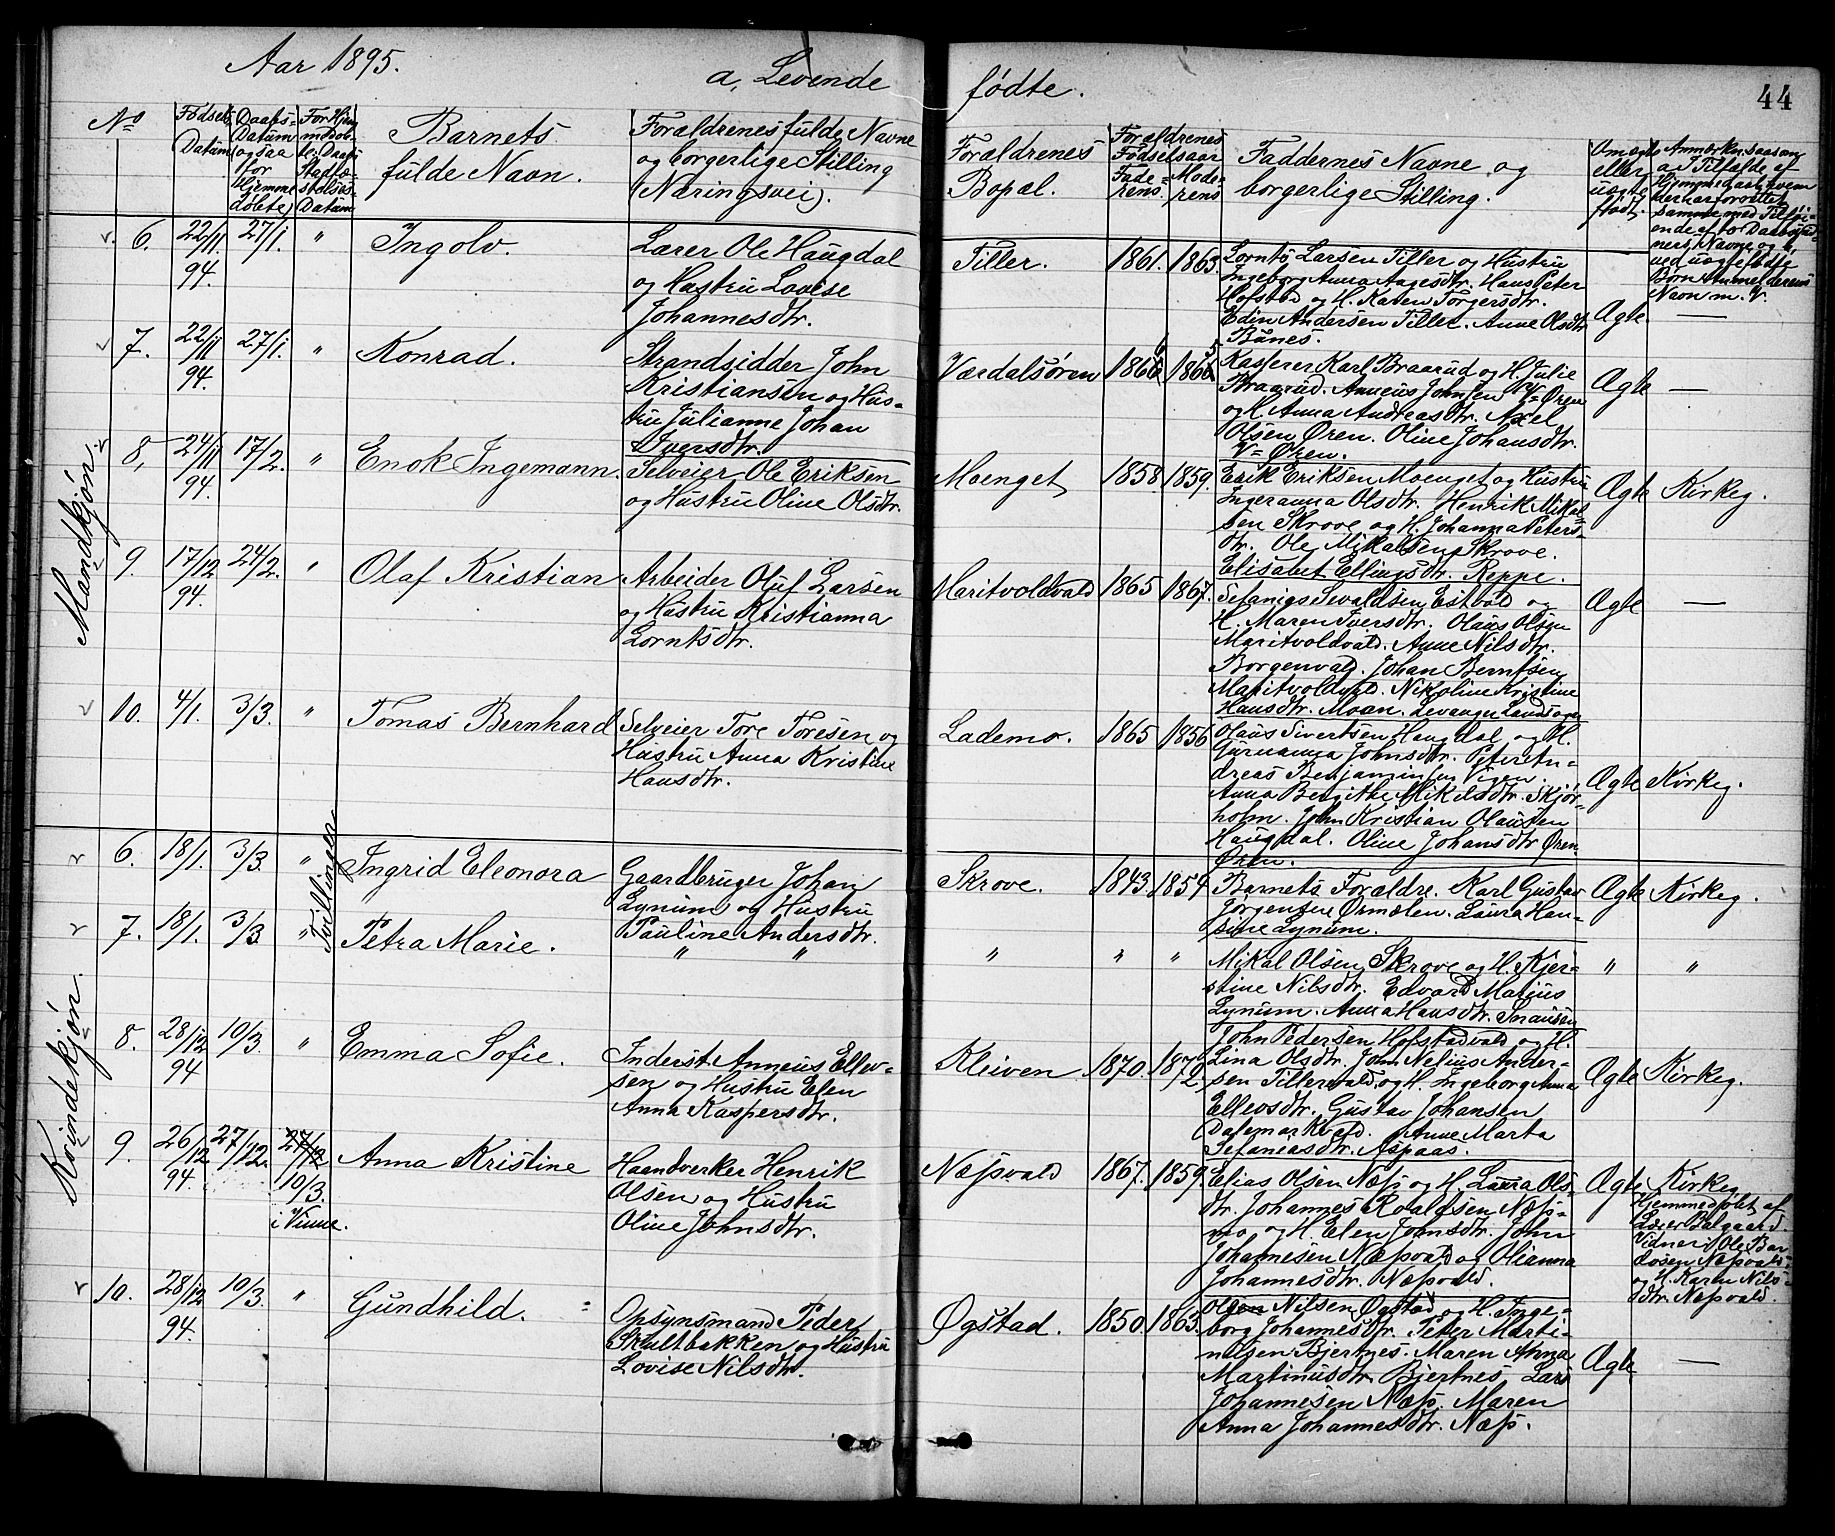 Aar 1895.
a, Levende fødte.
44
No
Fødsels Datum
Daabs-
Datum
ogsaa
for
Hjemme
døbte
For Hjem
medøb-
te: Daabs
Stadfæ-
stelses
Datum
Barnets
fulde Navn.
Forældrenes fulde Navne
og borgerlige Stilling
(Næringsvei).
Forældrenes
Bopæl.
Forældrenes
Fødselsaar
Fade-
rens
Mode-
rens
Faddernes Navne og
borgerlige Stilling.
Om ægte
eller
uægte
født.
Mandkjøn.
6. 22/11 94. 27/1. " Ingolv.
Lærer Ole Haugdal
og Hustru Lovise
Johannesdtr.
Tiller. 1861. 1863.
Lornts Larsen Tiller og Hustru
Ingeborg Anna Aagesdtr. Hans Peter
Hofstad og H. Karen Torgersdtr.
Edin Andersen Tiller. Anne Olsdtr
Bønes.
Ægte. —
7. 22/11 94. 27/1. " Konrad.
Strandsidder John
Kristiansen og Hus-
tru Julianne Johan
Iversdtr.
Værdalsøren
Kasserer Karl Braarud og H. Julie
Braarud. Anneus Johnsen V=Øren
og H. Anna Andreasdtr. Axel
Olsen Øren. Oline Johansdtr.
V=Øren.
Ægte —
8, 24/11 94. 17/2. " Enok Ingemann.
Selveier Ole Eriksen
og Hustru Oline Olsdtr.
Moenget 1858. 1859.
Erik Eriksen Moenget og Hustru
Ingeranna Olsdtr. Henrik Mikal-
sen Skrove og H. Johanna Peters-
dtr. Ole Mikalsen Skrove.
Elisabet Ellingsdtr. Reppe.
Ægte Kirkeg.
9. 17/12 94. 24/2. " Olaf Kristian
Arbeider Oluf Larsen
og Hustru Kristianna
Lorntsdtr.
Maritvoldvald 1865 1867.
Sefanias Sivaldsen Estvold og
H. Maren Iversdtr. Olaus Olsen
Maritvoldvald. Anne Nilsdtr.
Borgenvald. Johan Berntsen
Maritvoldvald. Nikoline Kristine
Hansdtr. Moan. Levanger Landsogn
Ægte —
10. 4/1. 3/3. " Tomas Bernhard
Selveier Tore Toresen og
Hustru Anna Kristine
Hansdtr.
Lademo. 1865 1856
Olaus Sivertsen Haugdal og H.
Gurnanna Johnsdtr. Peter An-
dreas Benjaminsen Vigen.
Anna Bergithe Mikalsdtr. Skjør-
holm. John Kristian Olausen
Haugdal. Oline Johansdtr Øren
Øren.
Ægte Kirkeg.
Kvindekjøn.
Tvillinger
6. 18/1. 3/3. " Ingrid Eleonora
Gaardbruger Johan
Lynum og Hustru
Pauline Andersdtr.
Skrove. 1843. 1854
Barnets Forældre. Karl Gustav
Jørgensen Ørmelen. Laura Han-
sine Lynum.
Ægte Kirkeg.
7. 18/1. 3/3 " Petra Marie.
" "
" " "
Mikal Olsen Skrove og H. Kjer-
stine Nilsdtr. Edvard Marius
Lynum. Anna Hansdtr. Snausen
" "
8. 28/12 94 10/3. " Emma Sofie.
Inderst Anneus Ellev-
sen og Hustru Elen
Anna Kaspersdtr.
Kleiven 1870. 1872.
John Pedersen Hofstadvald og H.
Lina Olsdtr. John Nelius Ander-
sen Tillervald og H. Ingeborg Anna
Ellevsdtr. Gustav Johansen
Dalemarkvald. Anne Marta
Sefaniasdtr. Aspaas.
Ægte Kirkeg.
9. 26/12 94. 27/12. 27/12 10/3. i Vinne. Anna Kristine
Haandverker Henrik
Olsen og Hustru
Oline Johnsdtr.
Næssvald 1867. 1859.
Elias Olsen Næss og H. Laura Ols-
dtr. Johannes Roaldsen Næss-
mo og H. Elen Johnsdtr. John
Johannesen Næssvald og Olianna
Johannesdtr. Næssvald.
Ægte Kirkeg
Hjemmedøbt af
Lærer Dalgaard
Vidner: Ole Bar
dosen Næssvald
og H. Karen Nils-
dtr. Næssvald.
10. 28/12 94. 10/3. " Gundhild.
Opsynsmand Peder
Skultbakken og Hustru
Lovise Nilsdtr.
Øgstad. 1850. 1863.
Olsen Nilsen Øgstad og H. Inge-
borg Johannesdtr. Peter Marti-
nusen Bjertnes. Maren Anna
Martinusdtr. Bjertnes. Lars
Johannesen Næss. Maren
Anna Johannesdtr. Næss.
Ægte —